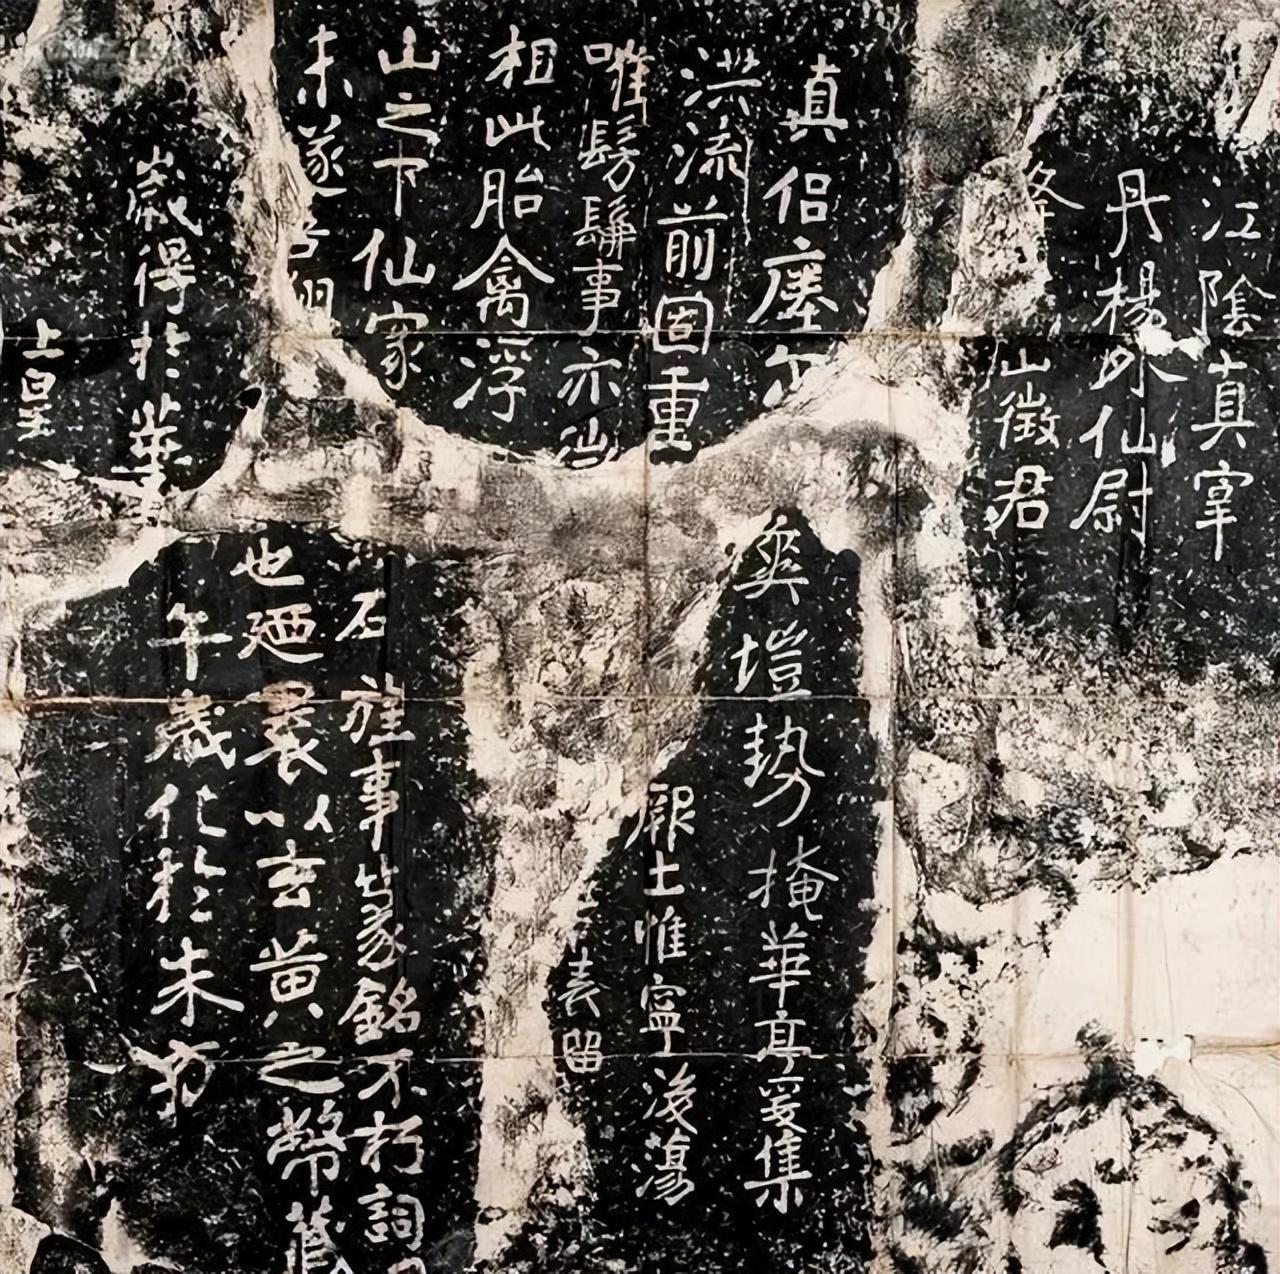 上皇
歲得於華
午歲化於朱方
未遂吾翔
也廼裹以玄黃之幣藏
山之下仙家
石旌事篆銘不朽詞曰
相此胎禽浮
唯髣髴事亦微
表留
洪流前固重
厥土惟寧後蕩
真侶瘞尔
爽塏勢掩華亭爰集
夅山徵君
丹楊外仙尉
江陰真宰